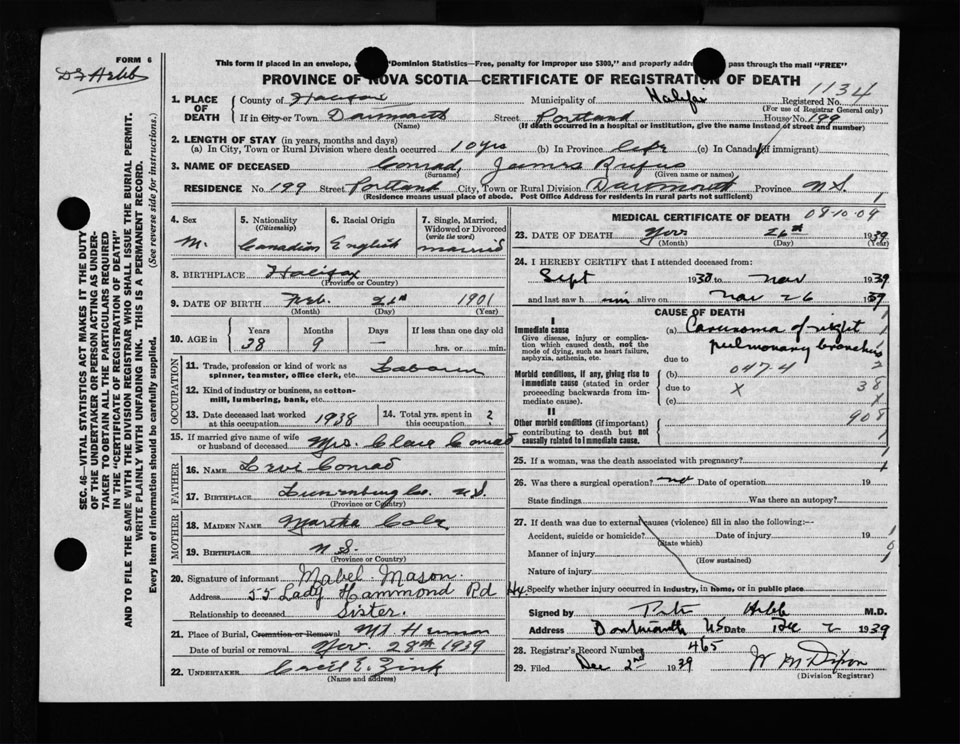 FORM 6
Dr Hebb
This form if placed in an envelope, "Dominion Statistics—Free, penalty for improper use $300," and properly addre pass through the mail "FREE"
PROVINCE OF NOVA SCOTIA—CERTIFICATE OF REGISTRATION OF DEATH
1134
1. PLACE OF DEATH County of Halifax Municipality of Halifax Registered No.
(For use of Registrar General only)
If in City or Town Dartmouth Street Portland House No. 199
(Name) (If death occurred in a hospital or institution, give the name instead of street and number)
2. LENGTH OF STAY (in years, months and days)
(a) In City, Town or Rural Division where death occurred 10 yrs (b) In Province life (c) In Canada (if immigrant)
3. NAME OF DECEASED Conrad, James Rufus
(Surname) (Given name or names)
RESIDENCE No. 199 Street Portland City, Town or Rural Division Dartmouth Province N.S.
(Residence means usual place of abode. Post Office Address for residents in rural parts not sufficient)
SEC. 46—VITAL STATISTICS ACT MAKES IT THE DUTY
OF THE UNDERTAKER OR PERSON ACTING AS UNDER-
TAKER TO OBTAIN ALL THE PARTICULARS REQUIRED
IN THE "CERTIFICATE OF REGISTRATION OF DEATH"
AND TO FILE THE SAME WITH THE DIVISION REGISTRAR WHO SHALL ISSUE THE BURIAL PERMIT.
WRITE PLAINLY WITH UNFADING INK. THIS IS A PERMANENT RECORD.
Every item of information should be carefully supplied. (See reverse side for instructions.)
4. Sex 5. Nationality 6. Racial Origin 7. Single, Married,
(Citizenship) Widowed or Divorced
(write the word)
M. Canadian English married
8. BIRTHPLACE Halifax
(Province or Country)
9. DATE OF BIRTH Feb. 26th 1901
(Month) (Day) (Year)
10. AGE in Years Months Days If less than one day old
38 9 — hrs. or min.
OCCUPATION
11. Trade, profession or kind of work as
spinner, teamster, office clerk, etc. Labourer
12. Kind of industry or business, as cotton-
mill, lumbering, bank, etc.
13. Date deceased last worked 14. Total yrs. spent in
at this occupation 1938 this occupation ?
15. If married give name of wife
or husband of deceased Mrs. Clara Conrad
FATHER
16. NAME Levi Conrad
17. BIRTHPLACE Lunenburg Co. N.S.
(Province or Country)
MOTHER
18. MAIDEN NAME Martha
19. BIRTHPLACE N.S.
(Province or Country)
20. Signature of informant Mabel Mason
Address 55 Lady Hammond Rd Hx
Relationship to deceased Sister.
21. Place of Burial, Cremation or Removal Mt Hermon
Date of burial or removal Nov. 28th 1939
22. UNDERTAKER Cecil E. Zink
(Name and address)
MEDICAL CERTIFICATE OF DEATH 08-10-09
23. DATE OF DEATH Nov 26th 1939
(Month) (Day) (Year)
24. I HEREBY CERTIFY that I attended deceased from:
Sept 1938 to Nov 1939
and last saw h im alive on Nov 26 1939
CAUSE OF DEATH
I
Immediate cause (a) Carcinoma of right
Give disease, injury or complica-
tion which caused death, not the pulmonary bronchus
mode of dying, such as heart failure,
asphyxia, asthenia, etc. due to
Morbid conditions, if any, giving rise to (b) 047-4
immediate cause (stated in order due to X 38
proceeding backwards from im-
mediate cause). (c)
II 908
Other morbid conditions (if important)
contributing to death but not
causally related to immediate cause.
25. If a woman, was the death associated with pregnancy?
26. Was there a surgical operation? no Date of operation 19
State findings Was there an autopsy?
27. If death was due to external causes (violence) fill in also the following:—
Accident, suicide or homicide? Date of injury 19
(State which)
Manner of injury
(How sustained)
Nature of injury
Specify whether injury occurred in industry, in home, or in public place
Signed by Hebb M.D.
Address Dartmouth NS Date Dec 2 1939
28. Registrar's Record Number 465
29. Filed Dec 2nd 1939 W M Dixon
(Division Registrar)